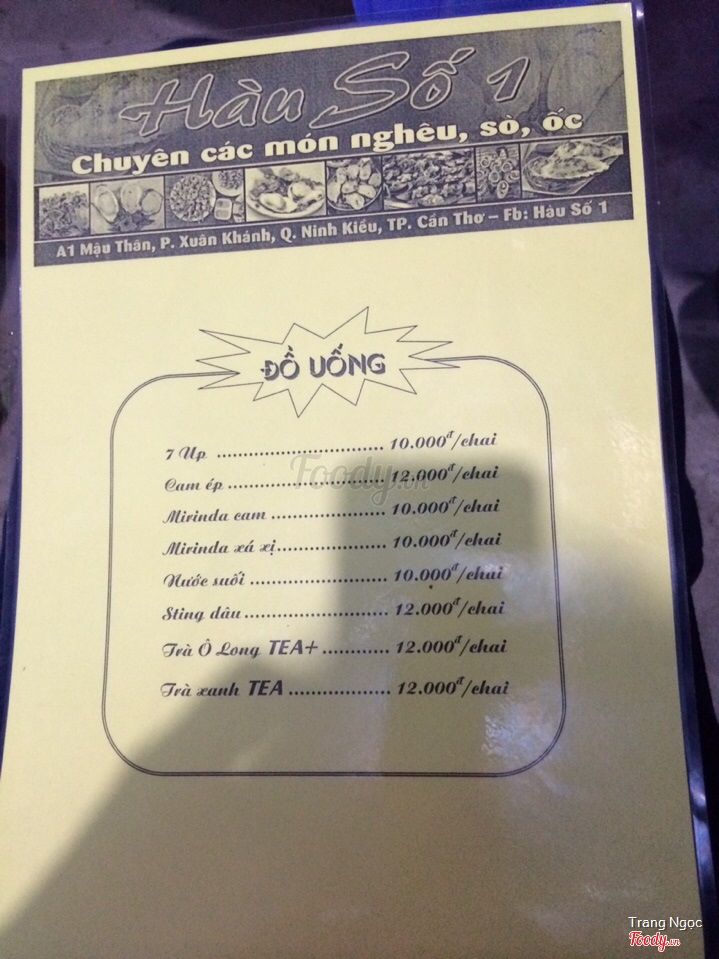 Hàu Số 1
Chuyên các món nghêu, sò, ốc
A1 Mậu Thân, P. Xuân Khánh, Q. Ninh Kiều, TP. Cần Thơ – Fb: Hàu Số 1
ĐỒ UỐNG
7 Up ................................ 10.000đ/chai
Cam ép ............................ 12.000đ/chai
Mirinda cam .................... 10.000đ/chai
Mirinda xá xị................... 10.000đ/chai
Nước suối ........................ 10.000đ/chai
Sting dâu......................... 12.000đ/chai
Trà Ô Long TEA+ ............ 12.000đ/chai
Trà xanh TEA .................. 12.000đ/chai
Foody.vn
Trang Ngọc
Foody.vn